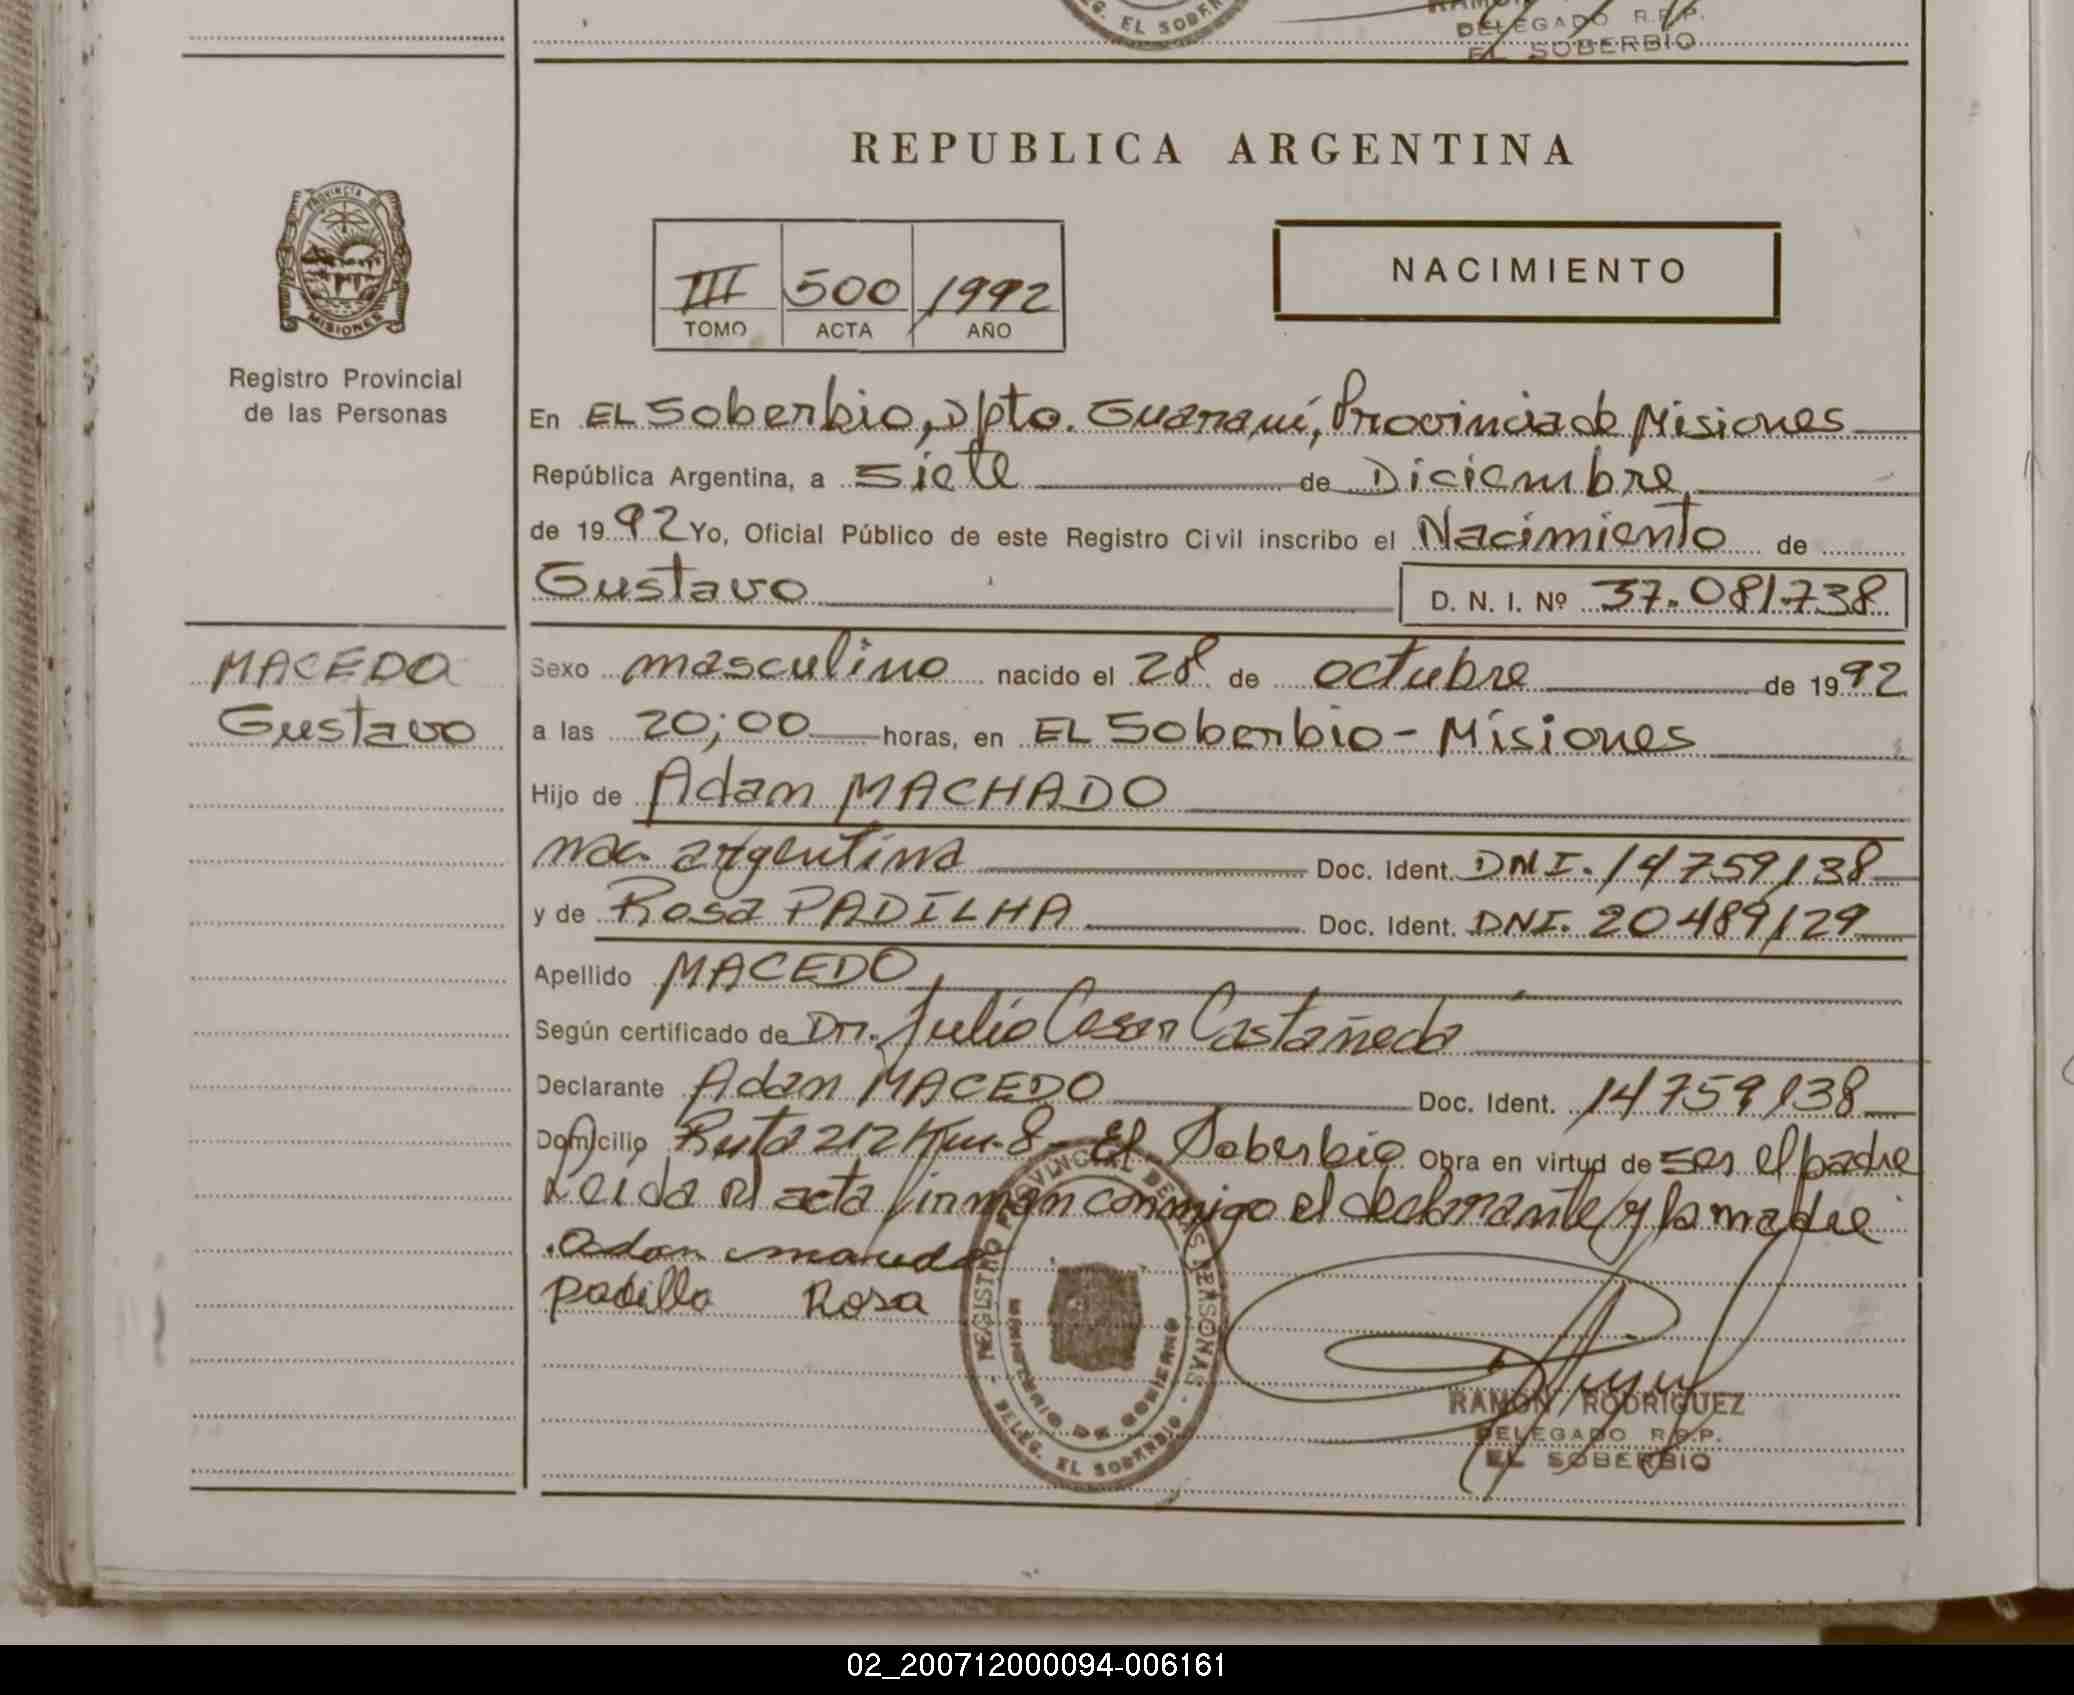 EG. EL SOBER
DELEGADO R.P.P.
EL SOBERBIO
REPUBLICA ARGENTINA
PROVINCIA DE
MISIONES
Registro Provincial
de las Personas
III 500 1992
TOMO ACTA AÑO
NACIMIENTO
En EL Soberbio, Dpto. Guaraní, Provincia de Misiones
República Argentina, a Siete de Diciembre
de 1992 Yo, Oficial Público de este Registro Civil inscribo el Nacimiento de
Gustavo D. N. I. Nº 37.081.738
MACEDO
Gustavo
Sexo masculino nacido el 28 de octubre de 1992
a las 20;00 horas, en EL Soberbio - Misiones
Hijo de Adam MACHADO
nac. argentina Doc. Ident. DNI. 14759138
y de Rosa PADILHA Doc. Ident. DNI. 20489129
Apellido MACEDO
Según certificado de Dr. Julio Cesar Castañeda
Declarante Adan MACEDO Doc. Ident. 14759138
Domicilio Ruta 212 Km. 8 - El Soberbio Obra en virtud de ser el padre
Leida el acta firman conmigo el declarante y la madre
adan macedo
padilla Rosa
REGISTRO PROVINCIAL DE LAS PERSONAS
MINISTERIO DE GOBIERNO
DELEG. EL SOBERBIO
RAMON RODRIGUEZ
DELEGADO R.P.P.
EL SOBERBIO
02_200712000094-006161